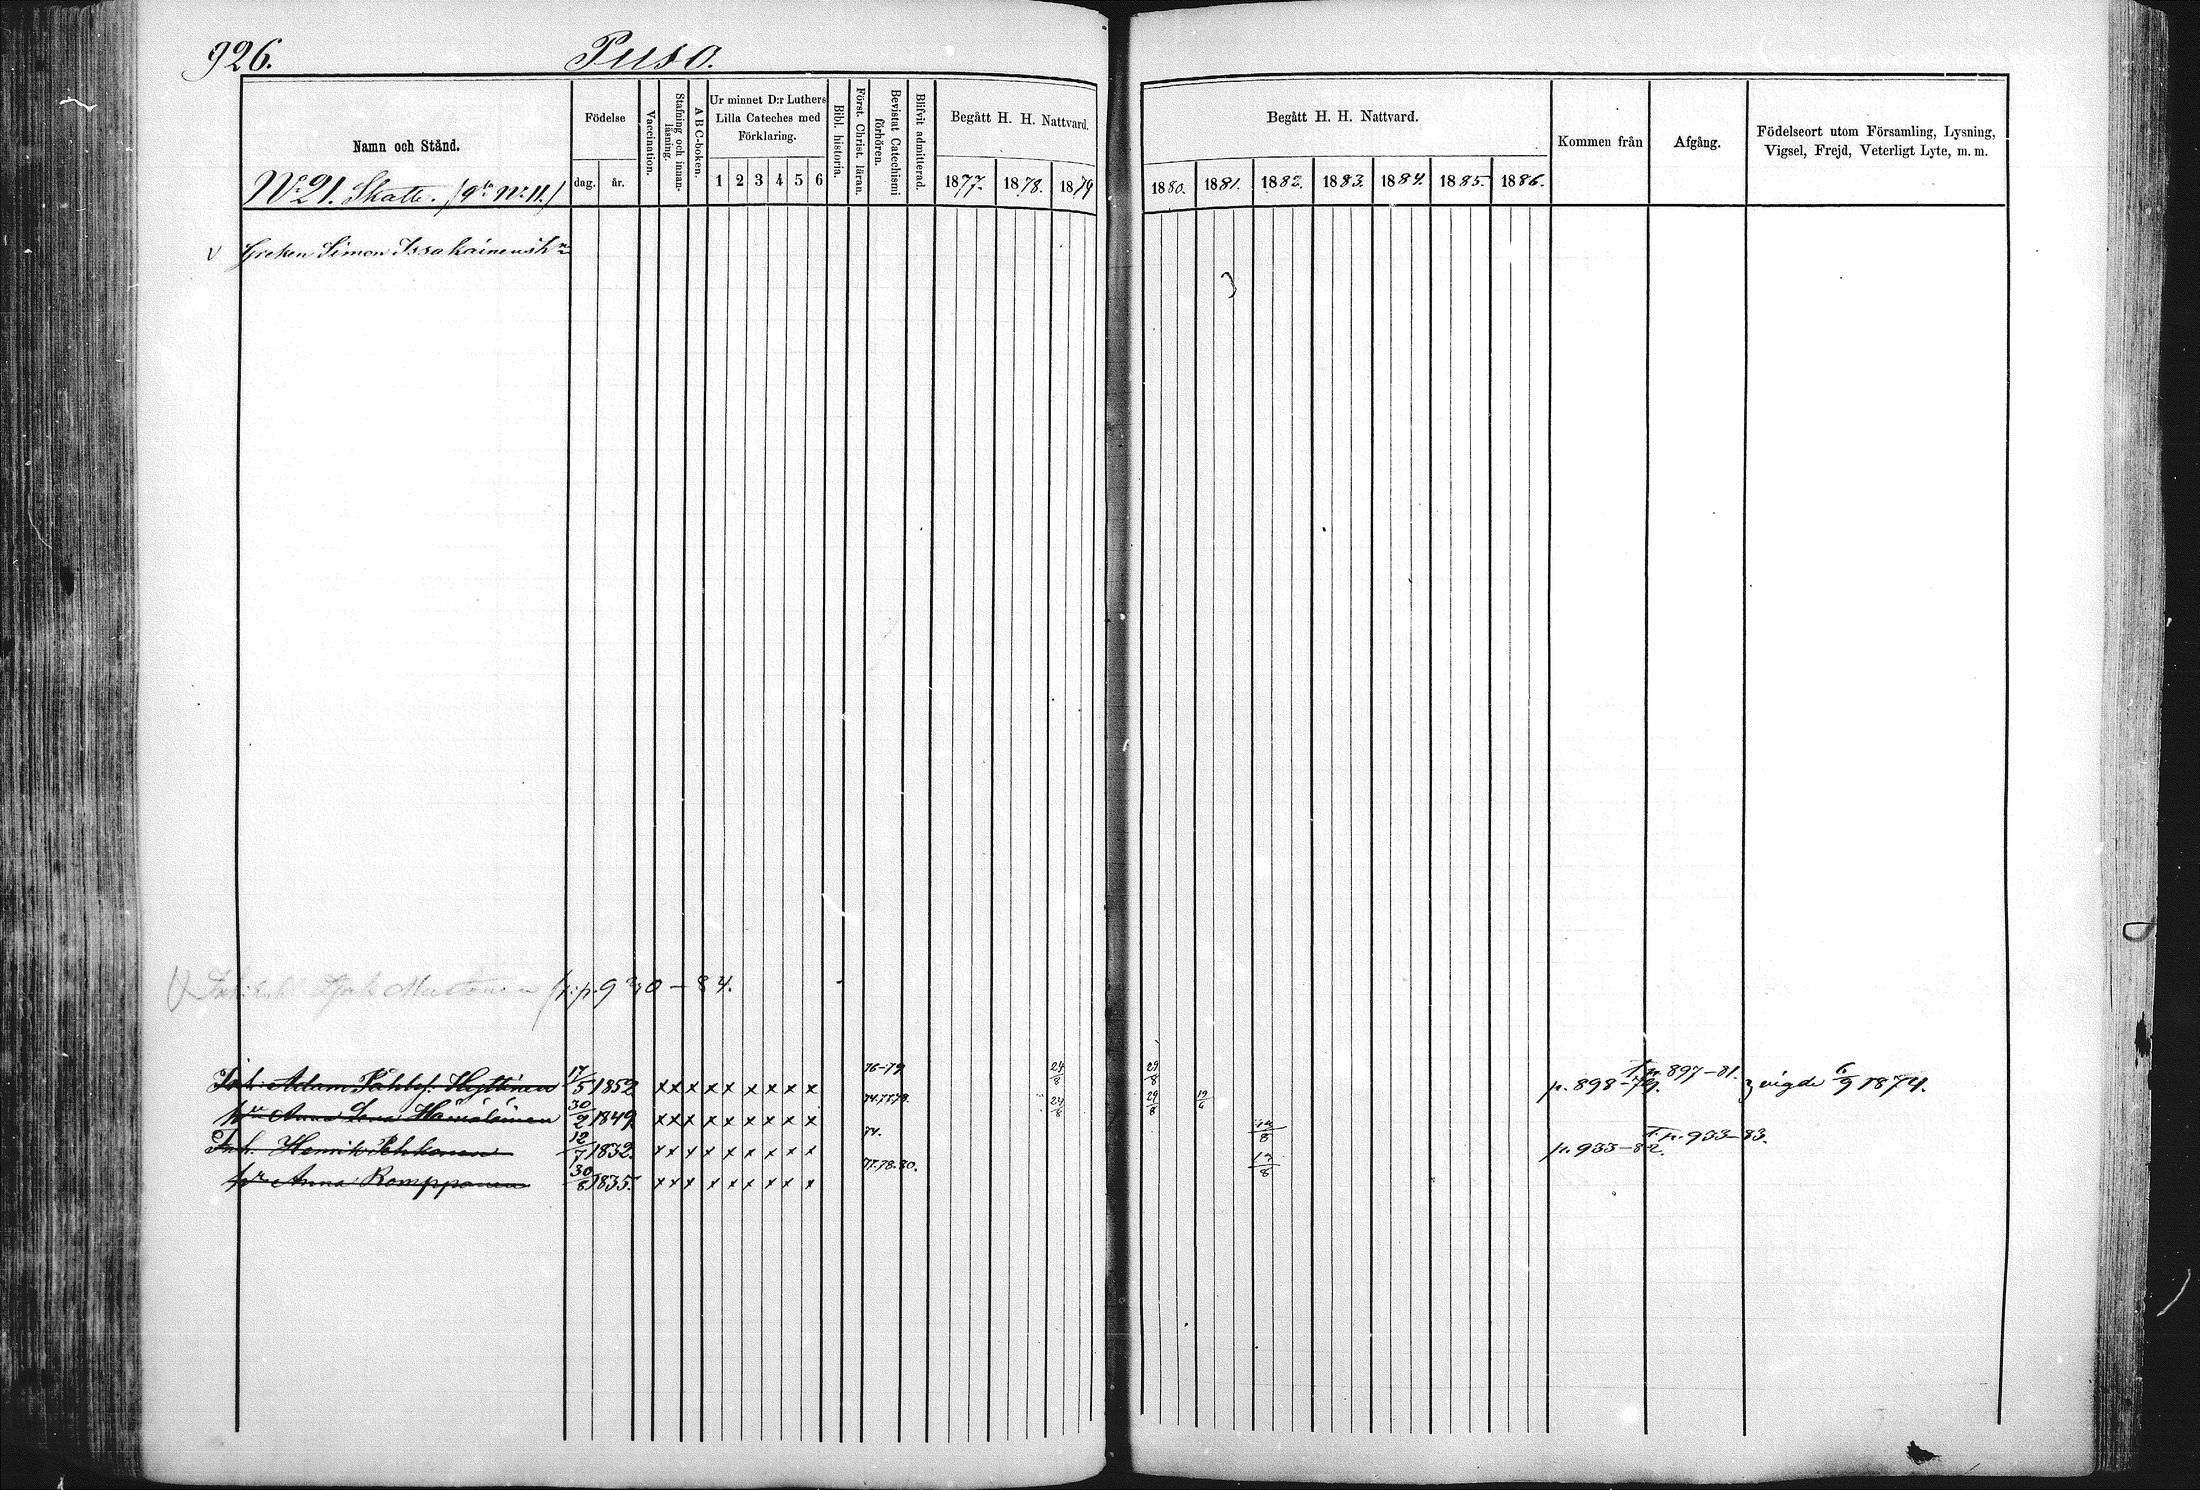 926. Puso.
Namn och Stånd.
Födelse
dag. år.
Vaccination.
Stafning och innanläsning.
ABC-boken.
Ur minnet D:r Luthers Lilla Cateches med Förklaring.
1 2 3 4 5 6
Bibl. historia.
Först. Christ. läran.
Bevistat Catechismi förhören.
Blifvit admitterad.
Begått H. H. Nattvard.
1877. 1878. 1879
Begått H. H. Nattvard.
1880. 1881. 1882. 1883. 1884. 1885. 1886.
Kommen från
Afgång.
Födelseort utom Församling, Lysning, Vigsel, Frejd, Veterligt Lyte, m. m.
No 21. Skatte. (gla No 11.)
v Greken Simon Issakainens hn
p. 930-84.
Inh. Adam Hyttinen 17/5 1852 x x x x x x x x x 76-79 24/8 29/8 p. 898-79. T. p. 897-81. vigde 6/9 1874.
hu Anna Lena Hämäläinen 30/2 1849 x x x x x x x x x 74.77.78. 24/8 29/8 19/6
Inh. Henrik Pehkonen 12/7 1832. x x x x x x x x x 74. 13/8 p. 933-82. T. p. 933-83.
hu Anna Romppanen 30/8 1835. x x x x x x x x x 77.78.80. 13/8